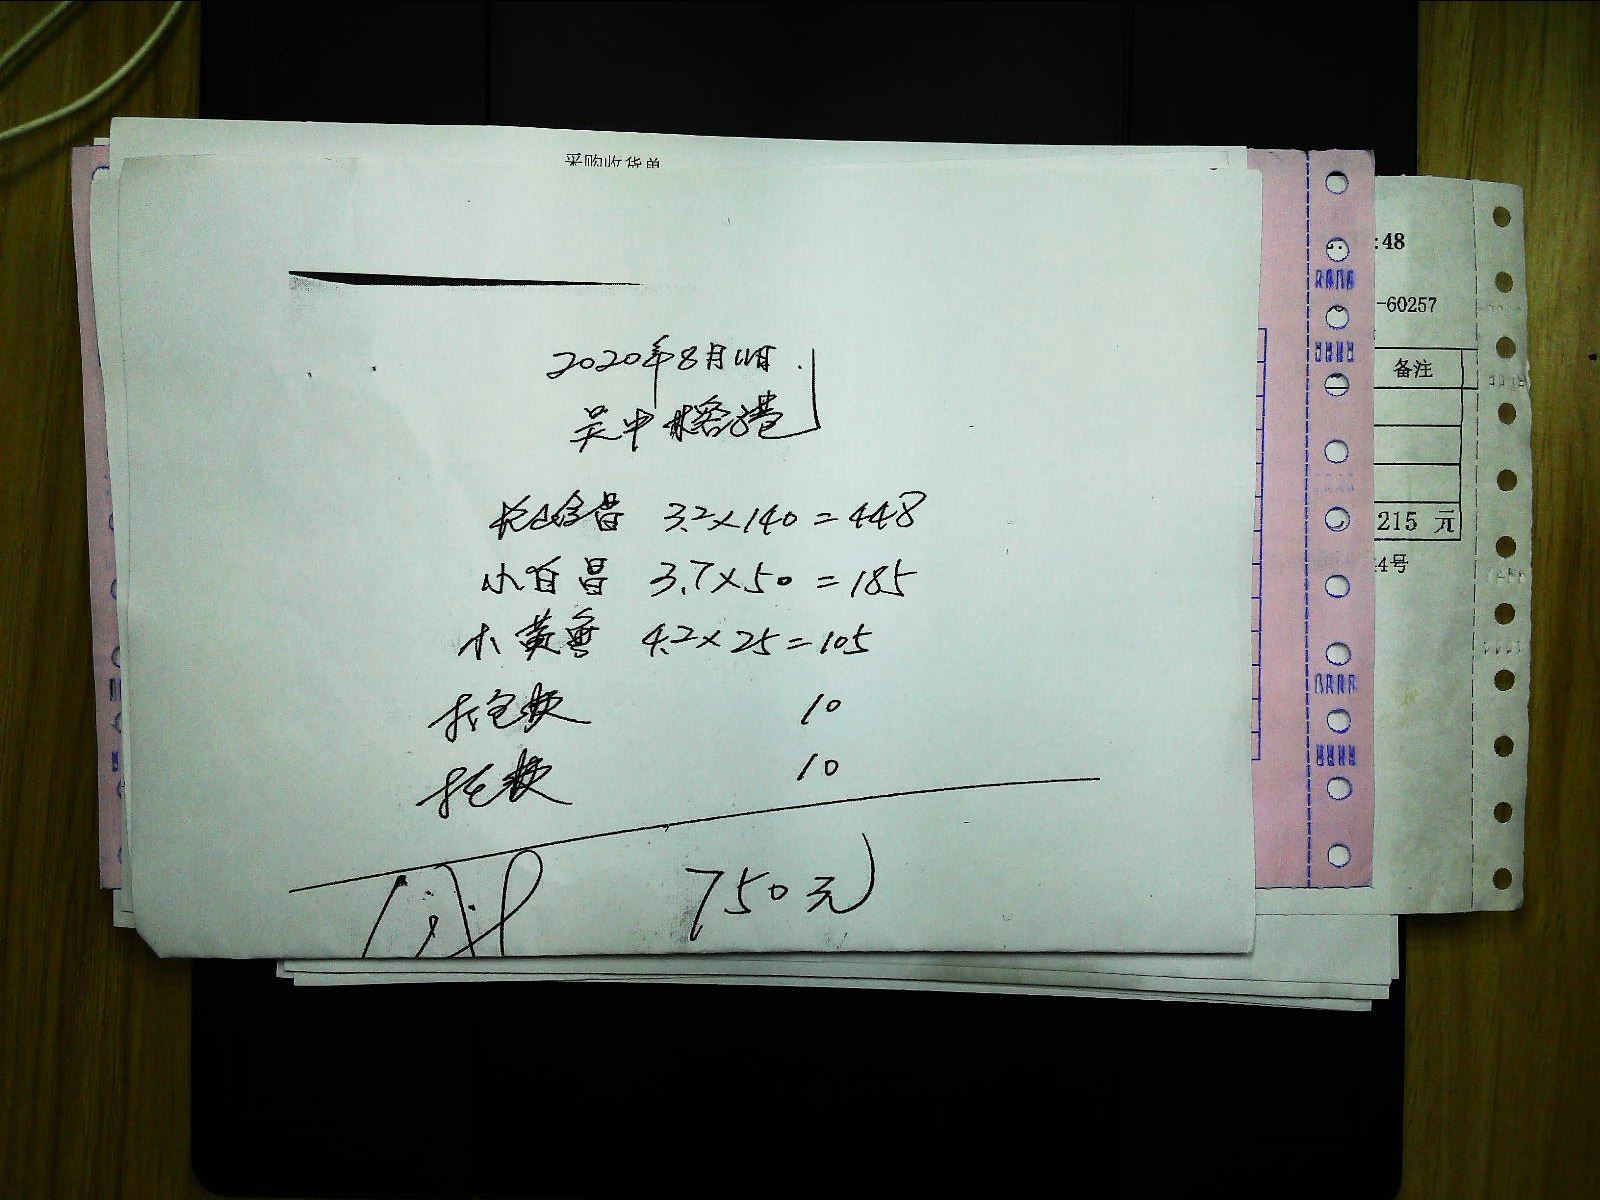 采购收货单
:48
-60257
备注
215 元
4号
2020年8月11日
吴中
3.2×140=448
小白昌 3.7×50=185
小黄鱼 4.2×25=105
打包费 10
10
750元